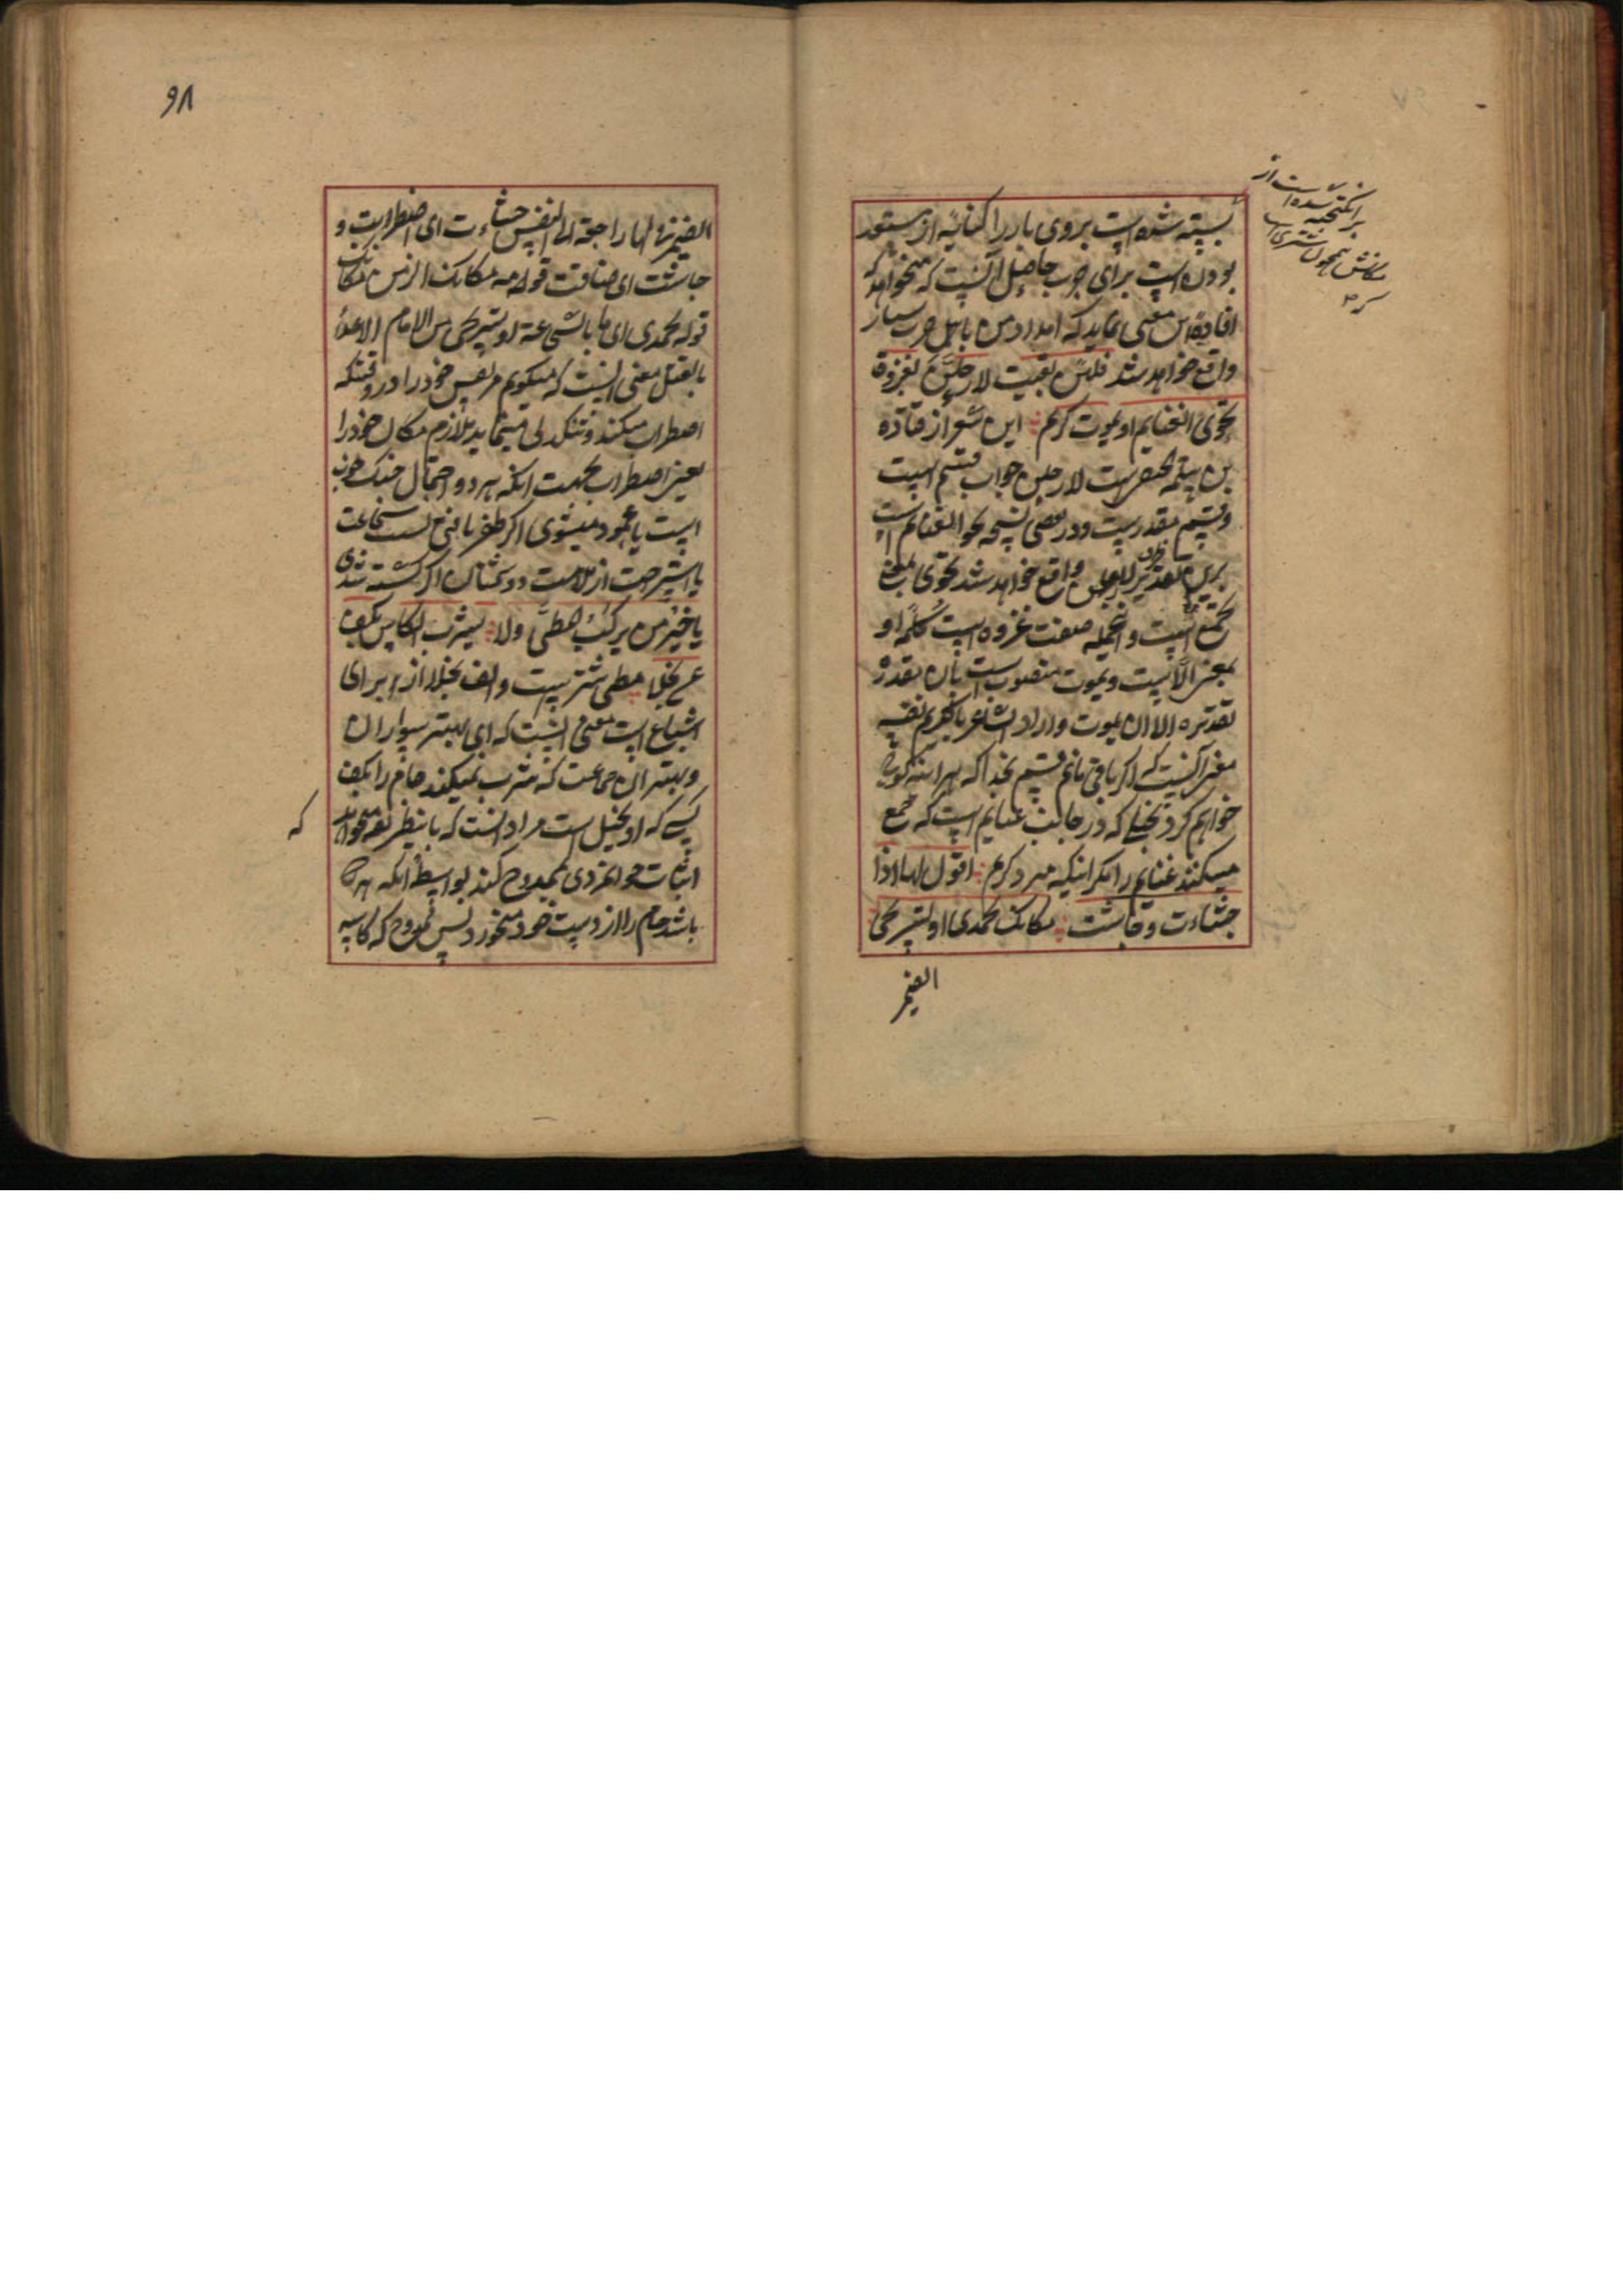 بسته شده است بروی بار را کنایة از مستعد
بودن است برای حرب حاصل آنست که میخواهد که
افاده این معنی نماید که امداد من با اهل حرب بسیار
واقع خواهد شد فلئن بقیت لارحلن بغزوة
تحوی الغنایم او یموت کریم این شعر از قتاده
بن مسلمه حنفی است لارحلن جواب قسم است
وقسم مقدرست ودر بعضی نسخه نحو الغنایم است
برین تقدیر ظرف لارحلن واقع خواهد شد تحوی بمعنی
تجمع است و اینجمله صفت غزوه است کلمه او
بمعنی الا است ویموت منصوب است بان مقدره
تقدیره الا ان یموت واراد الشاعر بالکریم نفسه
معنی آنست که اگر باقی مانم قسم بخدا که هر آینه کوچ
خواهم کرد بجنگی که در جالب غنایم است که جمع
میکنند غنایم را مگر اینکه میرد کریم اقول لها اذا
جشاءت وجاشت مکانک تحمدی او تستریحی
الضمیر
برانگیخته شده است از
مکانش همچون شتری
که
۹۸
الضمیر فی لها راجعة الی النفس جشاءت ای اضطربت و
جاشت ای ضاقت قوله مه مکانک الزمی مکانک
قوله تحمدی ای اما بالشجاعة او تستریحی من الالام الاعداء
بالقتل معنی اینست که میگویم مر نفس خود را در وقتیکه
اضطراب میکند وتنگدلی مینماید ملازم مکان خود را
بغیر اضطراب بجهت آنکه هر دو احتمال جنک خوب
است یا محمود میشوی اگر ظفر یافتی بسبب شجاعت
یا استراحت از ملامت دوستان اگر کشته شدی
یا خیر من یرکب المطی ولا یشرب الکاس بکف
من بخلا مطی شتر است والف بخلا از برای
اشباع است معنی اینست که ای بهتر سواران
وبهتر آن جماعت که شرب نمیکند جام را بکف
کسی که او بخیل است مراد آنست که باینطریق میخواهد که
اثبات جوانمردی ممدوح کند بواسطه آنکه هر کس
باشد جام را از دست خود میخورد پس ممدوح که کاسه